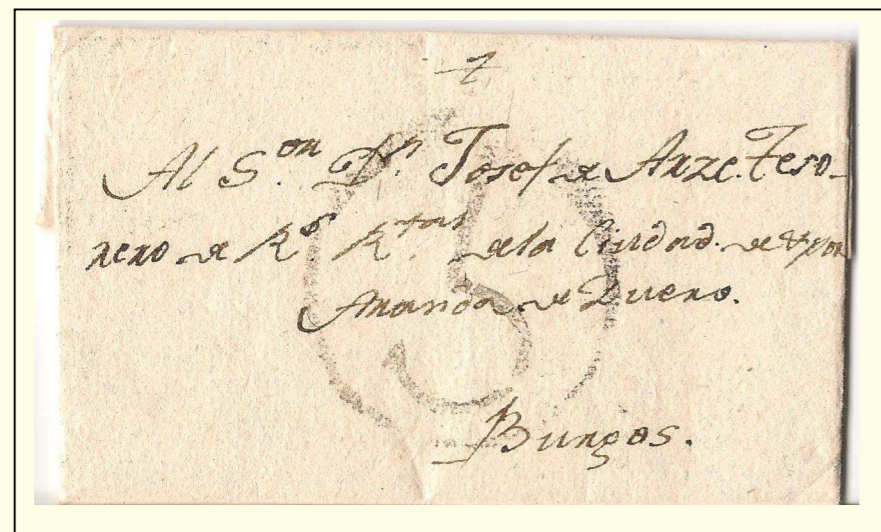 Al S.on D.n Josef de Arze. Teso-
rero de R.s R.tas de la Ciudad. de
Aranda de Duero.
5
Burgos.